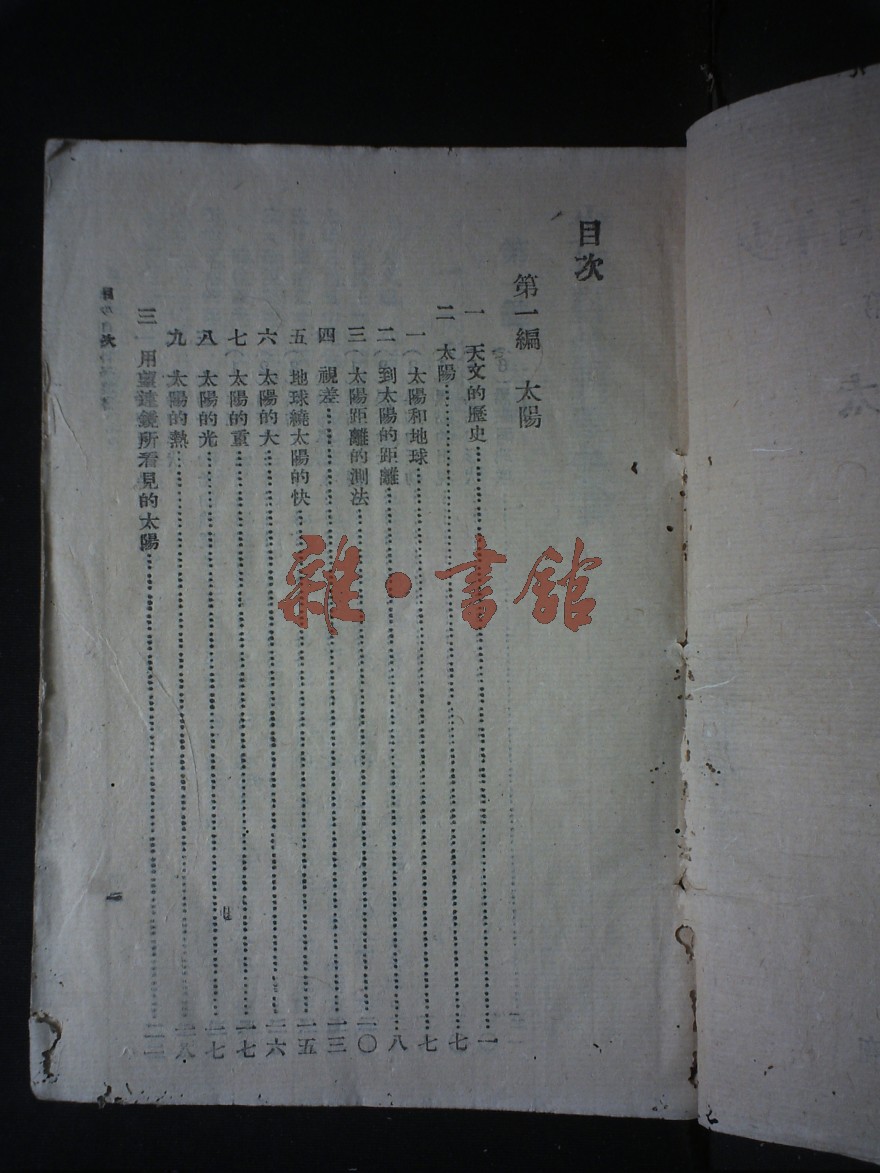 目次
第一編 太陽
一 天文的歷史……一
二 太陽……七
一 太陽和地球……七
二 到太陽的距離……八
三 太陽距離的測法……一〇
四 視差……一三
五 地球繞太陽的快……一五
六 太陽的大……一六
七 太陽的重……一七
八 太陽的光……一七
九 太陽的熱……一八
三 用望遠鏡所看見的太陽……二一
目次
一
雜·書館